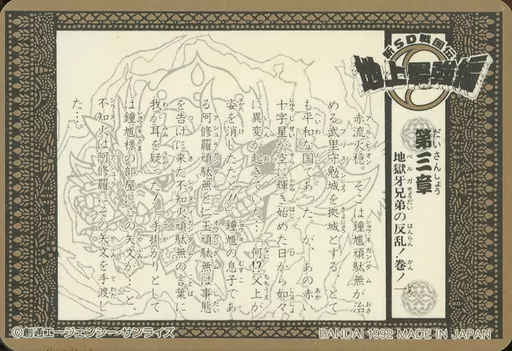 新SD戦国伝
地上最強編
第三章
だいさんしょう
地獄牙兄弟の反乱!巻ノ一
ベルガきょうだい はんらん かん
赤流火穏。そこは鐘馗頑駄無が治
める武里守勉城を拠城とする、とて
も平和な国であった。が、あの赤い
十字星が空に輝き始めた日から如々
に異変の起きていた…何!?父上が
姿を消したただと!!鐘馗の息子であ
る阿修羅頑駄無と仁王頑駄無は事態
を告げに来た不知火頑駄無の言葉に
我が耳を疑った。「手掛かりとして
は鐘馗様の部屋にこの矢文が…」と、
不知火は阿修羅にその矢文を手渡し
た…
©創通エージェンシー・サンライズ
BANDAI 1992 MADE IN JAPAN